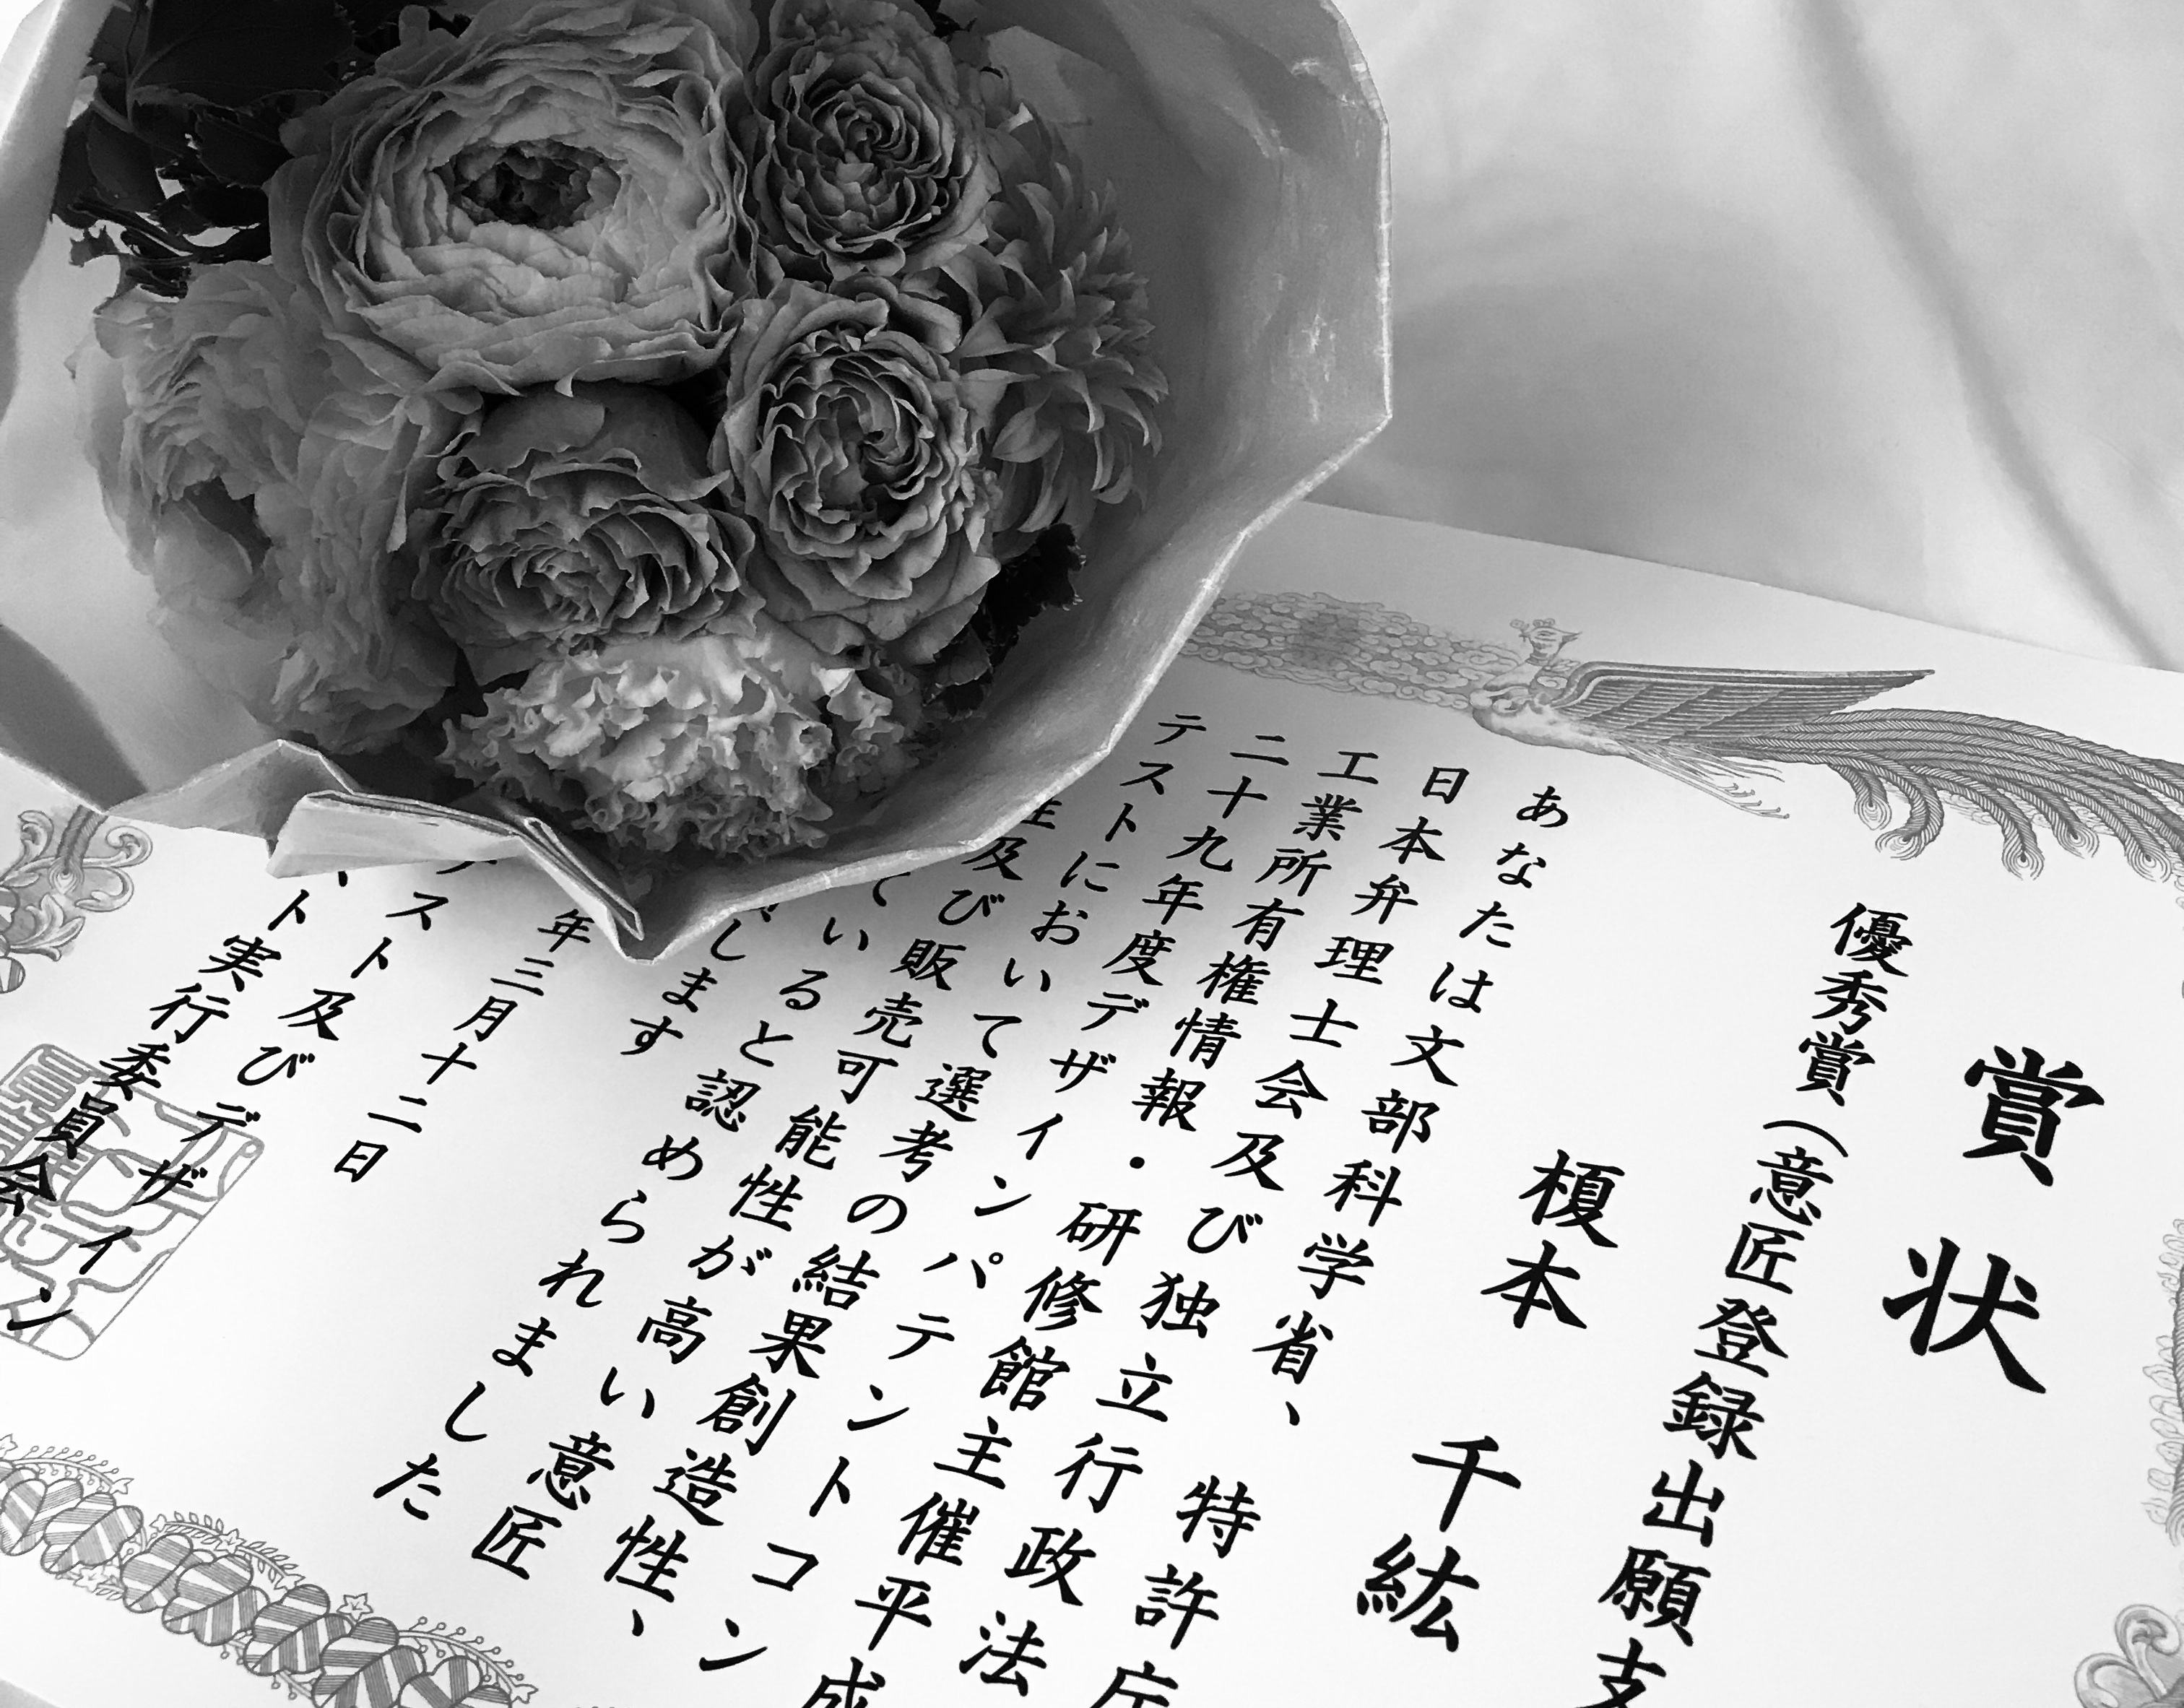 賞状
優秀賞（意匠登録出願支
榎本 千紘
あなたは文部科学省、特許庁
日本弁理士会及び独立行政法
工業所有権情報・研修館主催平成
二十九年度デザインパテントコン
テストにおいて選考の結果創造性、
及び販売可能性が高い意匠
いると認められました
します
年三月十二日
スト及びデザイン
ト実行委員会